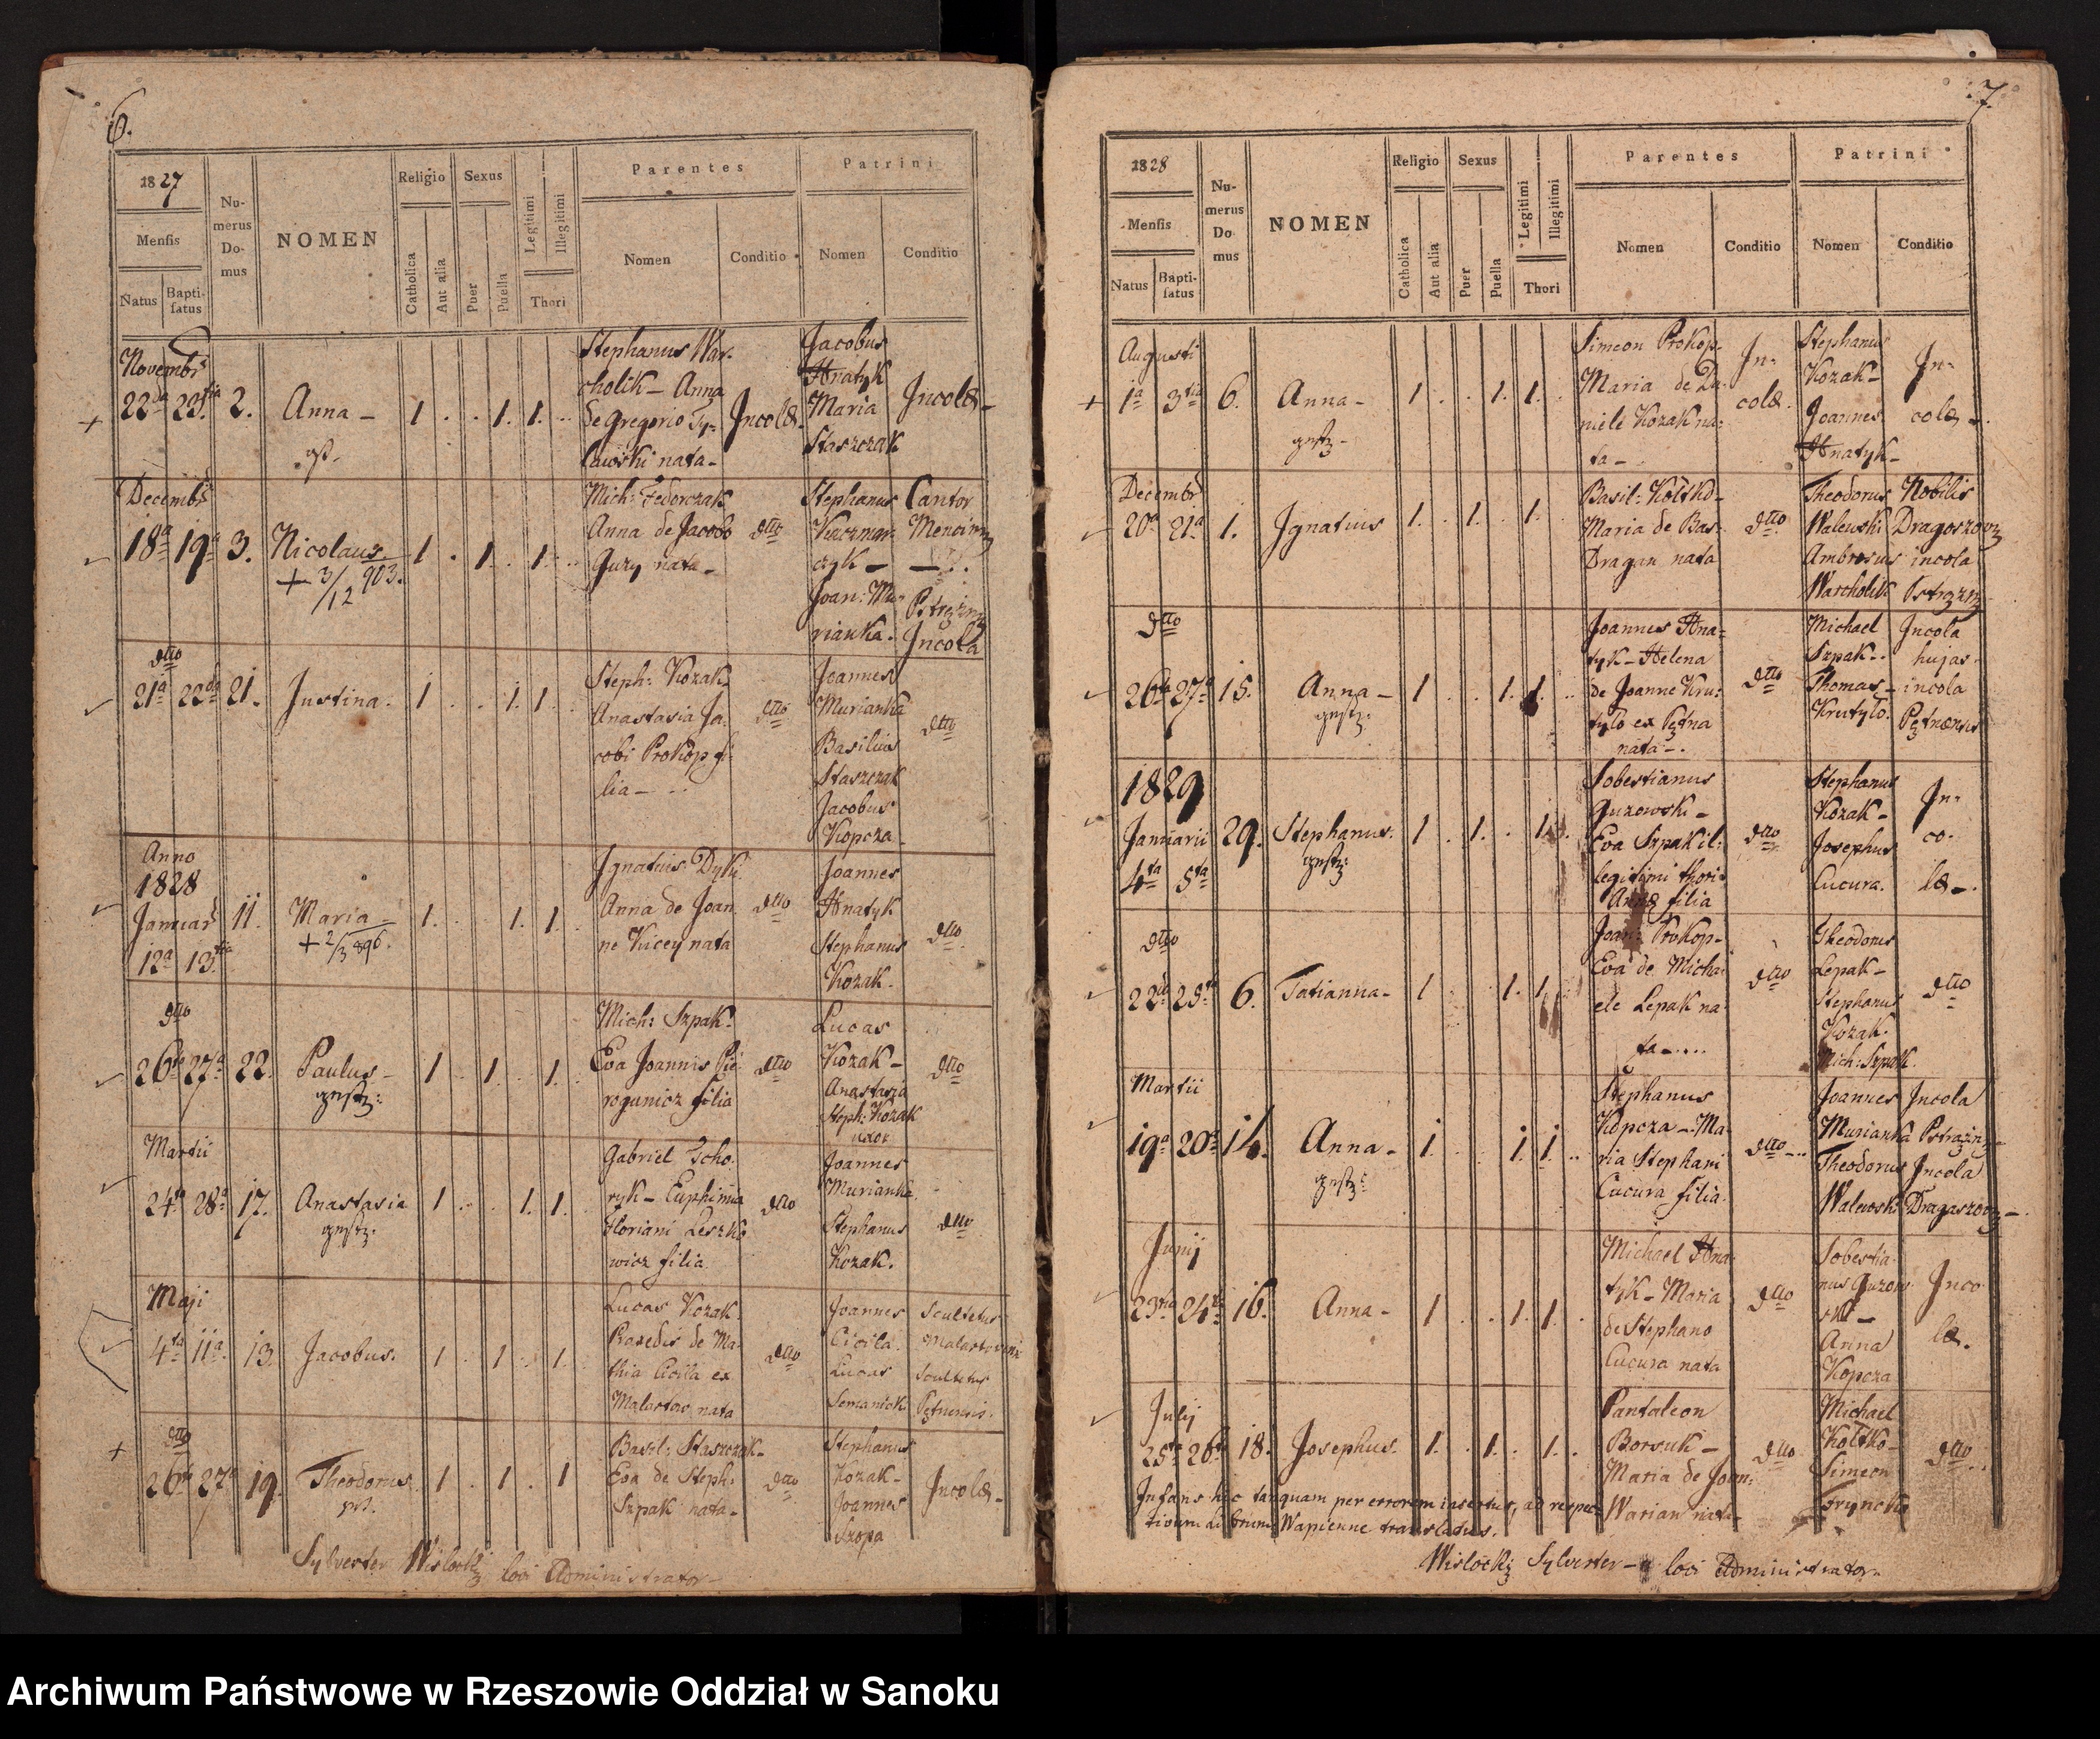 6.
1827
Mensis
Natus
Bapti-
satus
Nu-
merus
Do-
mus
NOMEN
Religio
Catholica
Aut alia
Sexus
Puer
Puella
Legitimi
Illegitimi
Thori
Parentes
Nomen
Conditio
Patrini
Nomen
Conditio
Novembr
22da 23tia 2. Anna –
1 . . 1. 1. ..
Stephanus War-
cholik – Anna
de Gregorio
nata –
Incolæ.
Jacobus
Hnatyk
Maria
Staszczak
Incolæ –
Decembr
18a 19a 3. Nicolaus.
+ 3/12 903.
1 . 1. . 1. ..
Mich: Fedorczak
Anna de Jacobo
Guzy nata –
dtto
Stephanus
Kaczmar-
czyk –
Joan: Mu-
rianka.
Cantor
Incola
dtto
21a 22da 21. Justina.
1 . . 1. 1. .
Steph: Kozak
Anastasia Ja-
cobi Prokop fi-
lia –
dtto
Joannes
Murianka
Basilius
Staszczak
Jacobus
Kopcza
dtto
Anno
1828
Januar
12a 13tia
11. Maria –
+ 2/3 896.
1. . . 1. 1.
Ignatius
Anna de Joan
ne Kucey nata
dtto
Joannes
Hnatyk
Stephanus
Kozak.
dtto
dtto
26ta 27a 22. Paulus –
1 . 1. . 1.
Mich: Szpak.
Eva Joannis
filia
dtto
Lucas
Kozak –
Anastasia
Steph: Kozak
uxor
dtto
Martii
24ta 28a 17. Anastasia
1 . . 1. 1.
Gabriel
ryk – Euphimia
Floriani Leszko
wicz filia
dtto
Joannes
Murianka.
Stephanus
Kozak.
dtto
Maji
4ta 11a 13. Jacobus.
1 . 1 . 1.
Lucas Kozak
Paxedis de Ma-
thia Cicila ex
Malastow nata
dtto
Joannes
Cicila.
Lucas
Semaniok
Scultetus
Scultetus
dtto
26ta 27a 19. Theodorus.
1 . 1 . 1
Basil: Staszczak –
Eva de Steph:
Szpak nata –
dtto
Stephanus
Kozak –
Joannes
Szopa
Incolæ –
Sylvester Wislocky loci Administrator –
7.
1828
Mensis
Natus
Bapti-
satus
Nu-
merus
Do
mus
NOMEN
Religio
Catholica
Aut alia
Sexus
Puer
Puella
Legitimi
Illegitimi
Thori
Parentes
Nomen
Conditio
Patrini
Nomen
Conditio
Augusti
1a 3tia 6. Anna –
1 . . 1. 1.
Simeon Prokop –
Maria de Da-
niele Kozak na-
ta –
In-
colæ.
Stephanus
Kozak –
Joannes
Hnatyk –
In-
colæ –
Decembr
20a 21a 1. Ignatius
1. . 1. . 1.
Basil: Koltko –
Maria de Bas:
Dragan nata
dtto
Theodorus
Walewski
Ambrosius
Warcholik
Nobilis
incola
dtto
26ta 27a 15. Anna –
1 . . 1. 1. ..
Joannes Hna-
tyk – Helena
de Joanne Kru-
tylo ex Pętna
nata –.
dtto
Michael
Szpak –.
Thomas –
Krutylo.
Incola
hujas.
incola
1829
Januarii
4ta 5ta
29. Stephanus.
1 . 1. . 1.
Sobestianus
Guzowski –
Eva Szpak il-
legitimi thori
Annæ filia
dtto
Stephanus
Kozak –
Josephus
Cucura.
In-
co-
læ –.
dtto
22da 6. Tatianna –
1 . . 1. 1.
Joan: Prokop –
Eva de Micha-
ele Lepak na-
ta – ....
dtto
Theodorus
Lepak –
Stephanus
Kozak.
Mich: Szpak.
dtto
Martii
19a 20a 14. Anna –
1. . . 1. 1. ..
Stephanus
Kopcza – Ma-
ria Stephani
Cucura filia.
dtto – ..
Joannes
Murianka
Theodorus
Walewski
Incola
Incola
Junij
23tia 24ta 16. Anna –
1 . . 1. 1.
Michael Hna-
tyk – Maria
de Stephano
Cucura nata
dtto
Sobestia-
nus Guzow-
ski –
Anna
Kopcza
Inco-
læ.
Julij
25ta 26ta 18. Josephus.
1. . 1. . 1. .
Pantaleon
Borsuk –
Maria de Joan:
Warian nata –
dtto
Michael
Koltko –
Simeon
dtto
Infans hic tanquam per errorem insertus, ad respec-
tivum Librum Wapienne translatus.
Wislocky Sylvester – loci Administrator –
Archiwum Państwowe w Rzeszowie Oddział w Sanoku